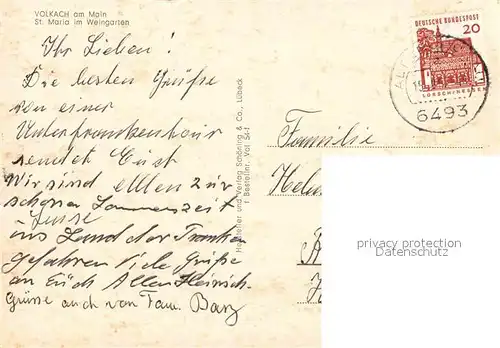 VOLKACH am Main
St. Maria im Weingarten
Ihr Lieben!
Die besten Grüße
von einer
Unterfrankentour
sendet Eust
Wir sind allen zur
schönen Sommerszeit
ins Land der Franken
gefahren Viele Grüße
an Euch Allen Heinrich
Grüsse auch von Fam. Barz
Hersteller und Verlag Schöning & Co., Lübeck
Bestellnr. Vol
DEUTSCHE BUNDESPOST
20
LORSCH/HESSEN
6493
Familie
privacy protection
Datenschutz